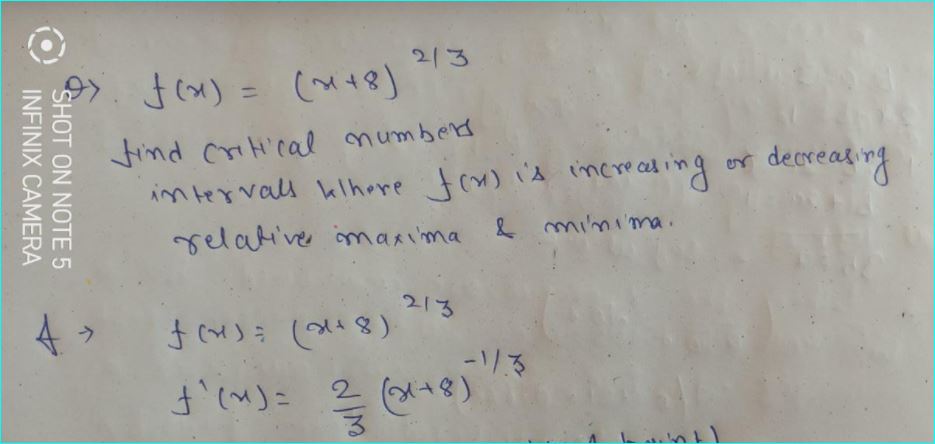 Q> f(x) = (x+8)^2/3
find critical numbers
intervals where f(x) is increasing or decreasing
relative maxima & minima.
A → f(x) = (x+8)^2/3
f'(x) = 2/3 (x+8)^-1/3
SHOT ON NOTE 5
INFINIX CAMERA